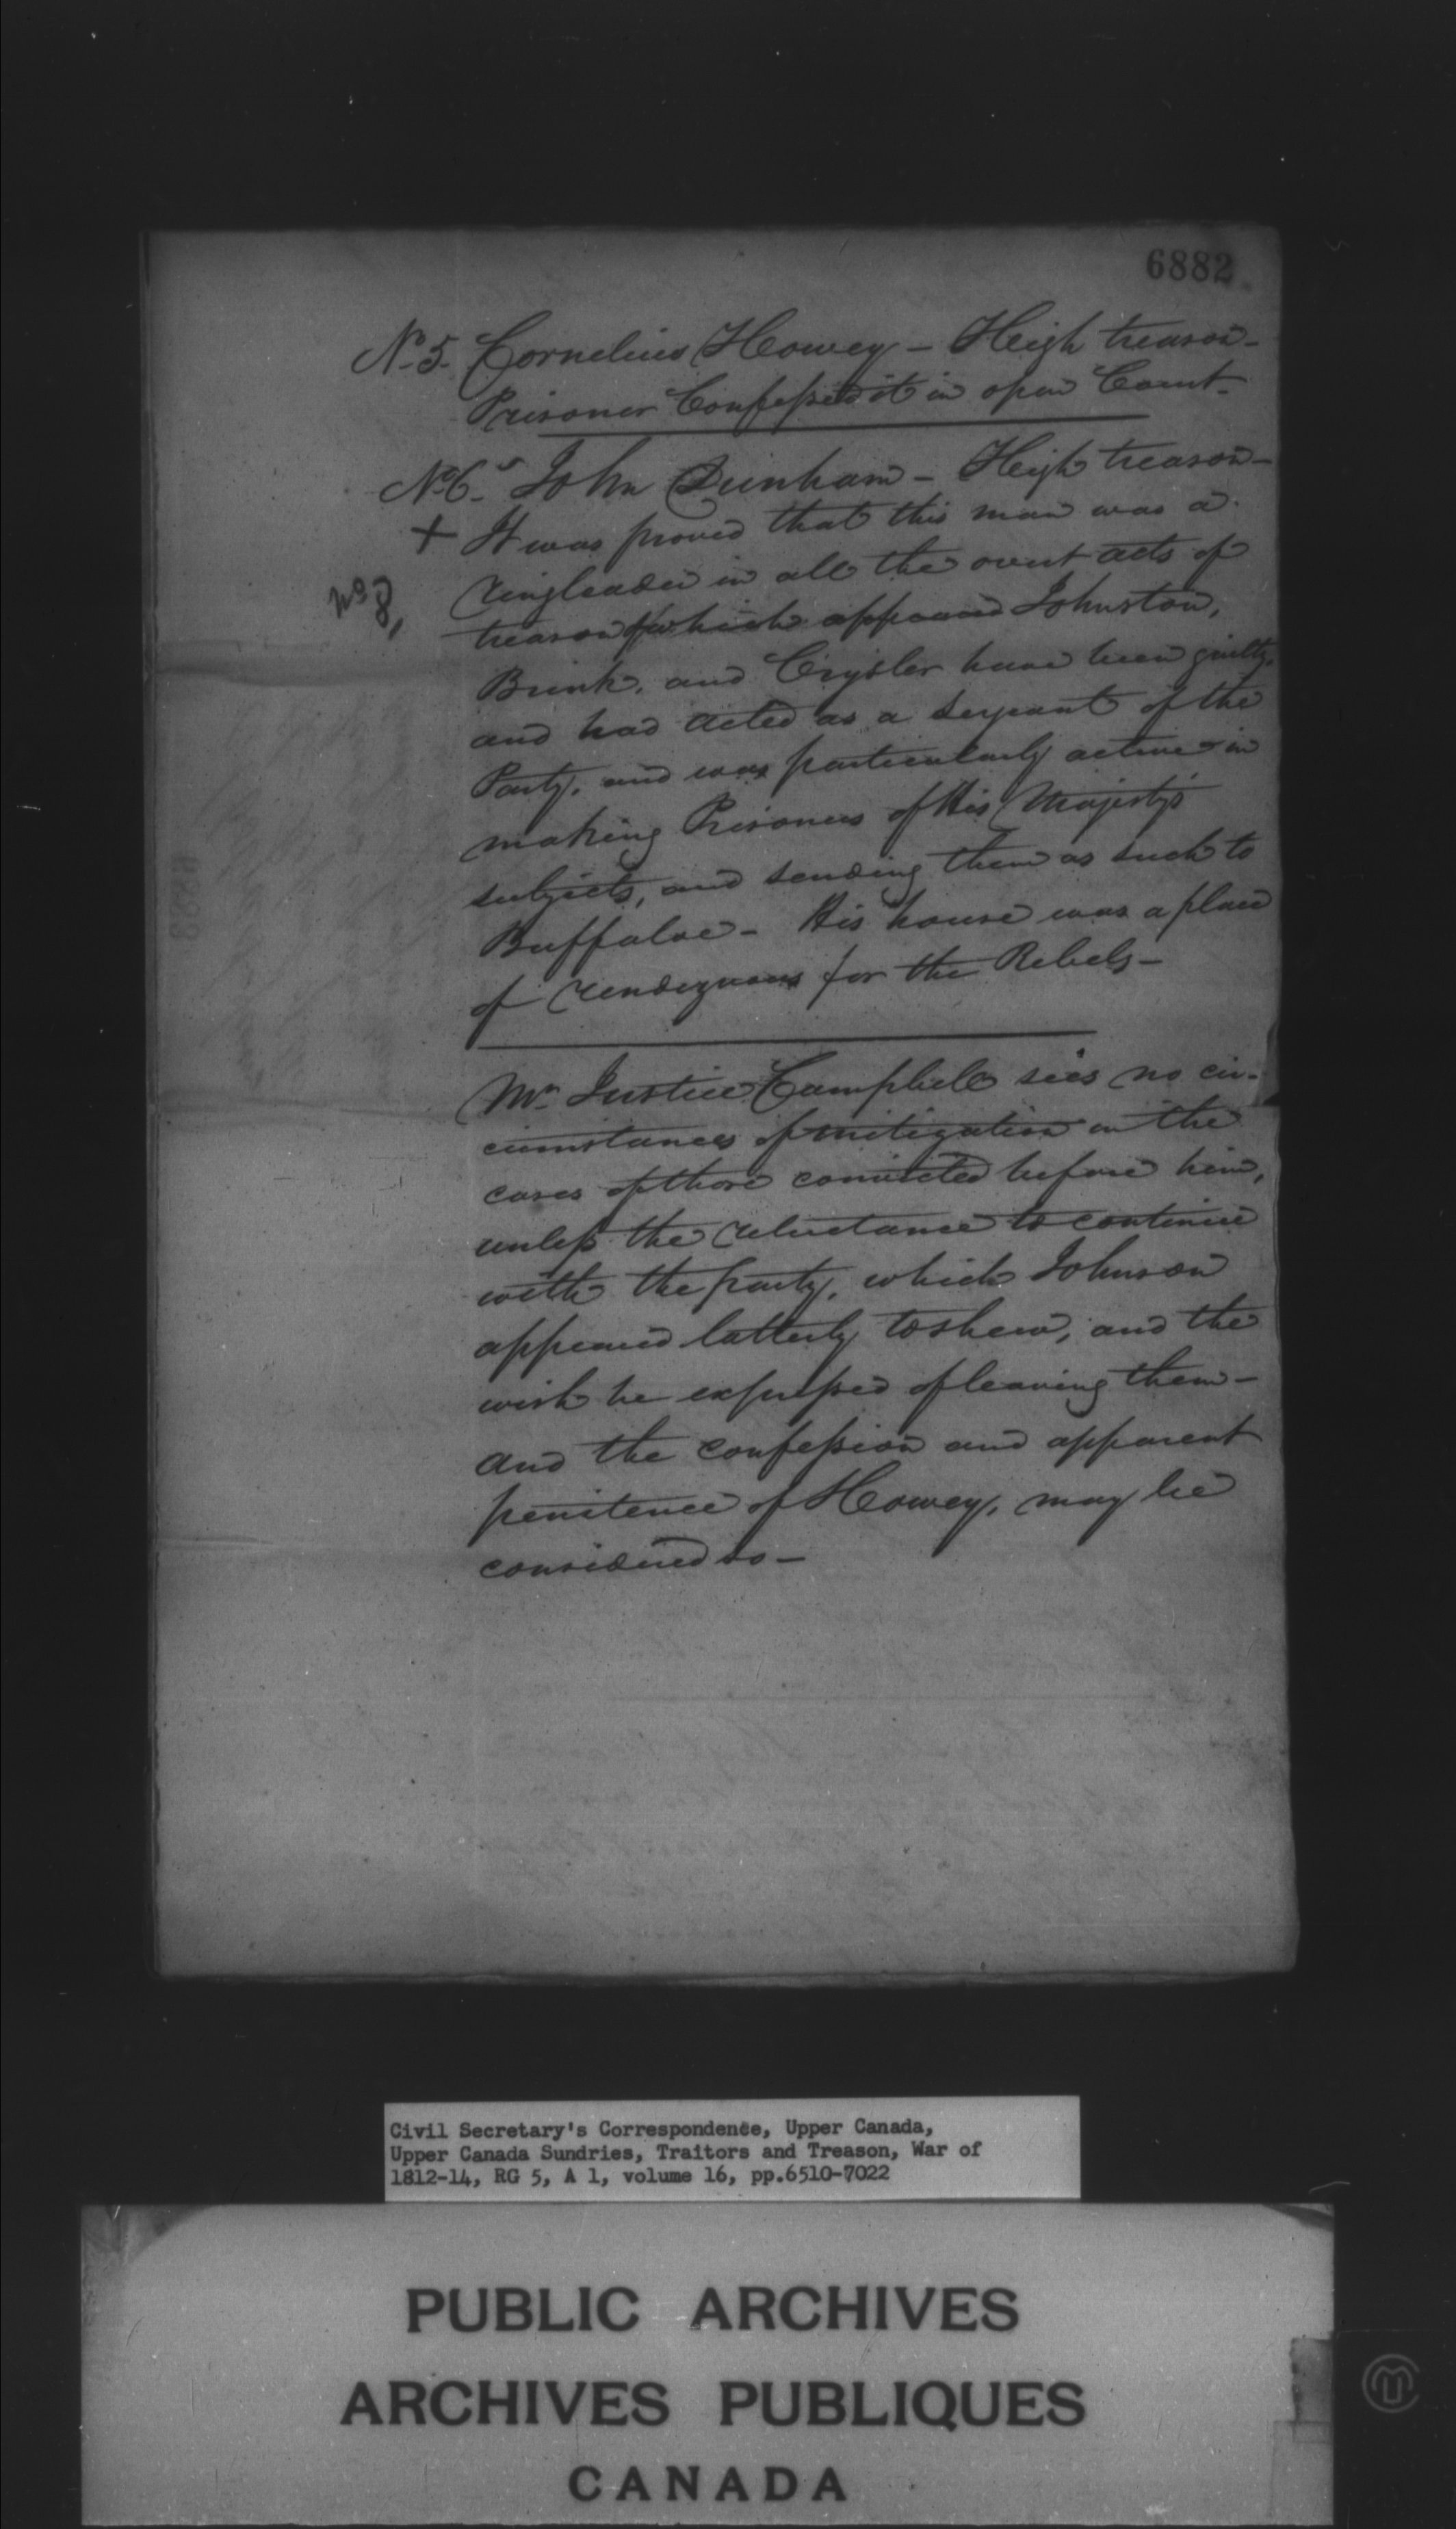 6882
No. 5. Cornelius Howey – High treason –
Prisoner Confessed it in open Court –
No. 6. John Dunham – High treason –
+ It was proved that this man was a
No 8,
ringleader in all the overt acts of
treason of which appeared Johnston,
Brink, and Crysler have been guilty,
and had acted as a serjeant of the
Party, and was particularly active in
making Prisoners of His Majesty's
subjects, and sending them as such to
Buffaloe – His house was a place
of rendezvous for the Rebels –
Mr. Justice Campbell sees no cir-
cumstances of mitigation in the
cases of those convicted before him,
unless the reluctance to continue
with the party, which Johnson
appeared latterly to shew, and the
wish he expressed of leaving them –
and the confession and apparent
penitence of Howey, may be
considered so –
Civil Secretary's Correspondence, Upper Canada,
Upper Canada Sundries, Traitors and Treason, War of
1812-14, RG 5, A 1, volume 16, pp.6510-7022
PUBLIC ARCHIVES
ARCHIVES PUBLIQUES
CANADA